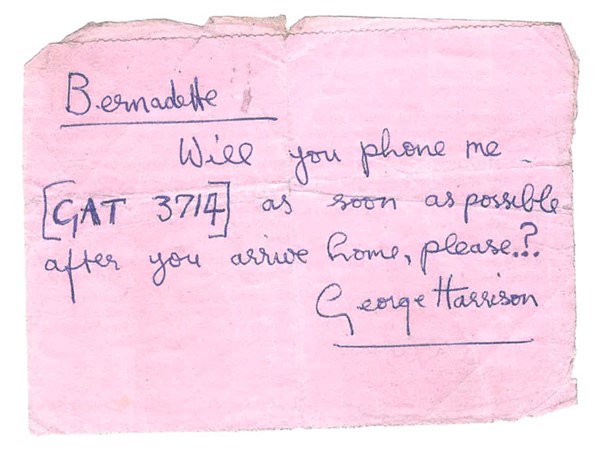 Bernadette
Will you phone me
[GAT 3714] as soon as possible
after you arrive home, please.?
George Harrison